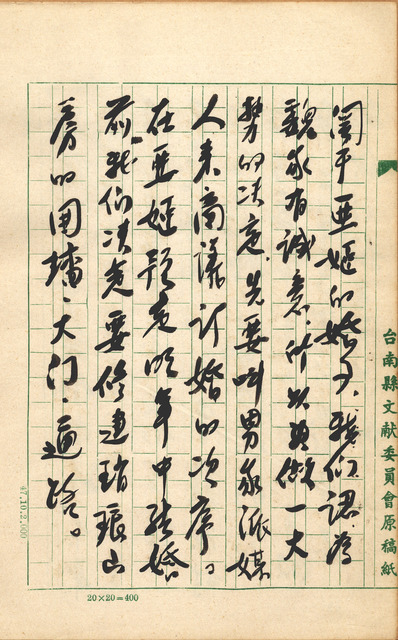 關于亜姬的婚事、我們認為
魏家有誠意、所以要做一大
勢的決意、先要叫男家派媒
人来商議訂婚的次序。
在亜姬預定明年中結婚
前、我們決定要修建瑣琅山
房的圍墻、大门、通路。
台南縣文献委員會原稿紙
47.10.2.000
20×20=400